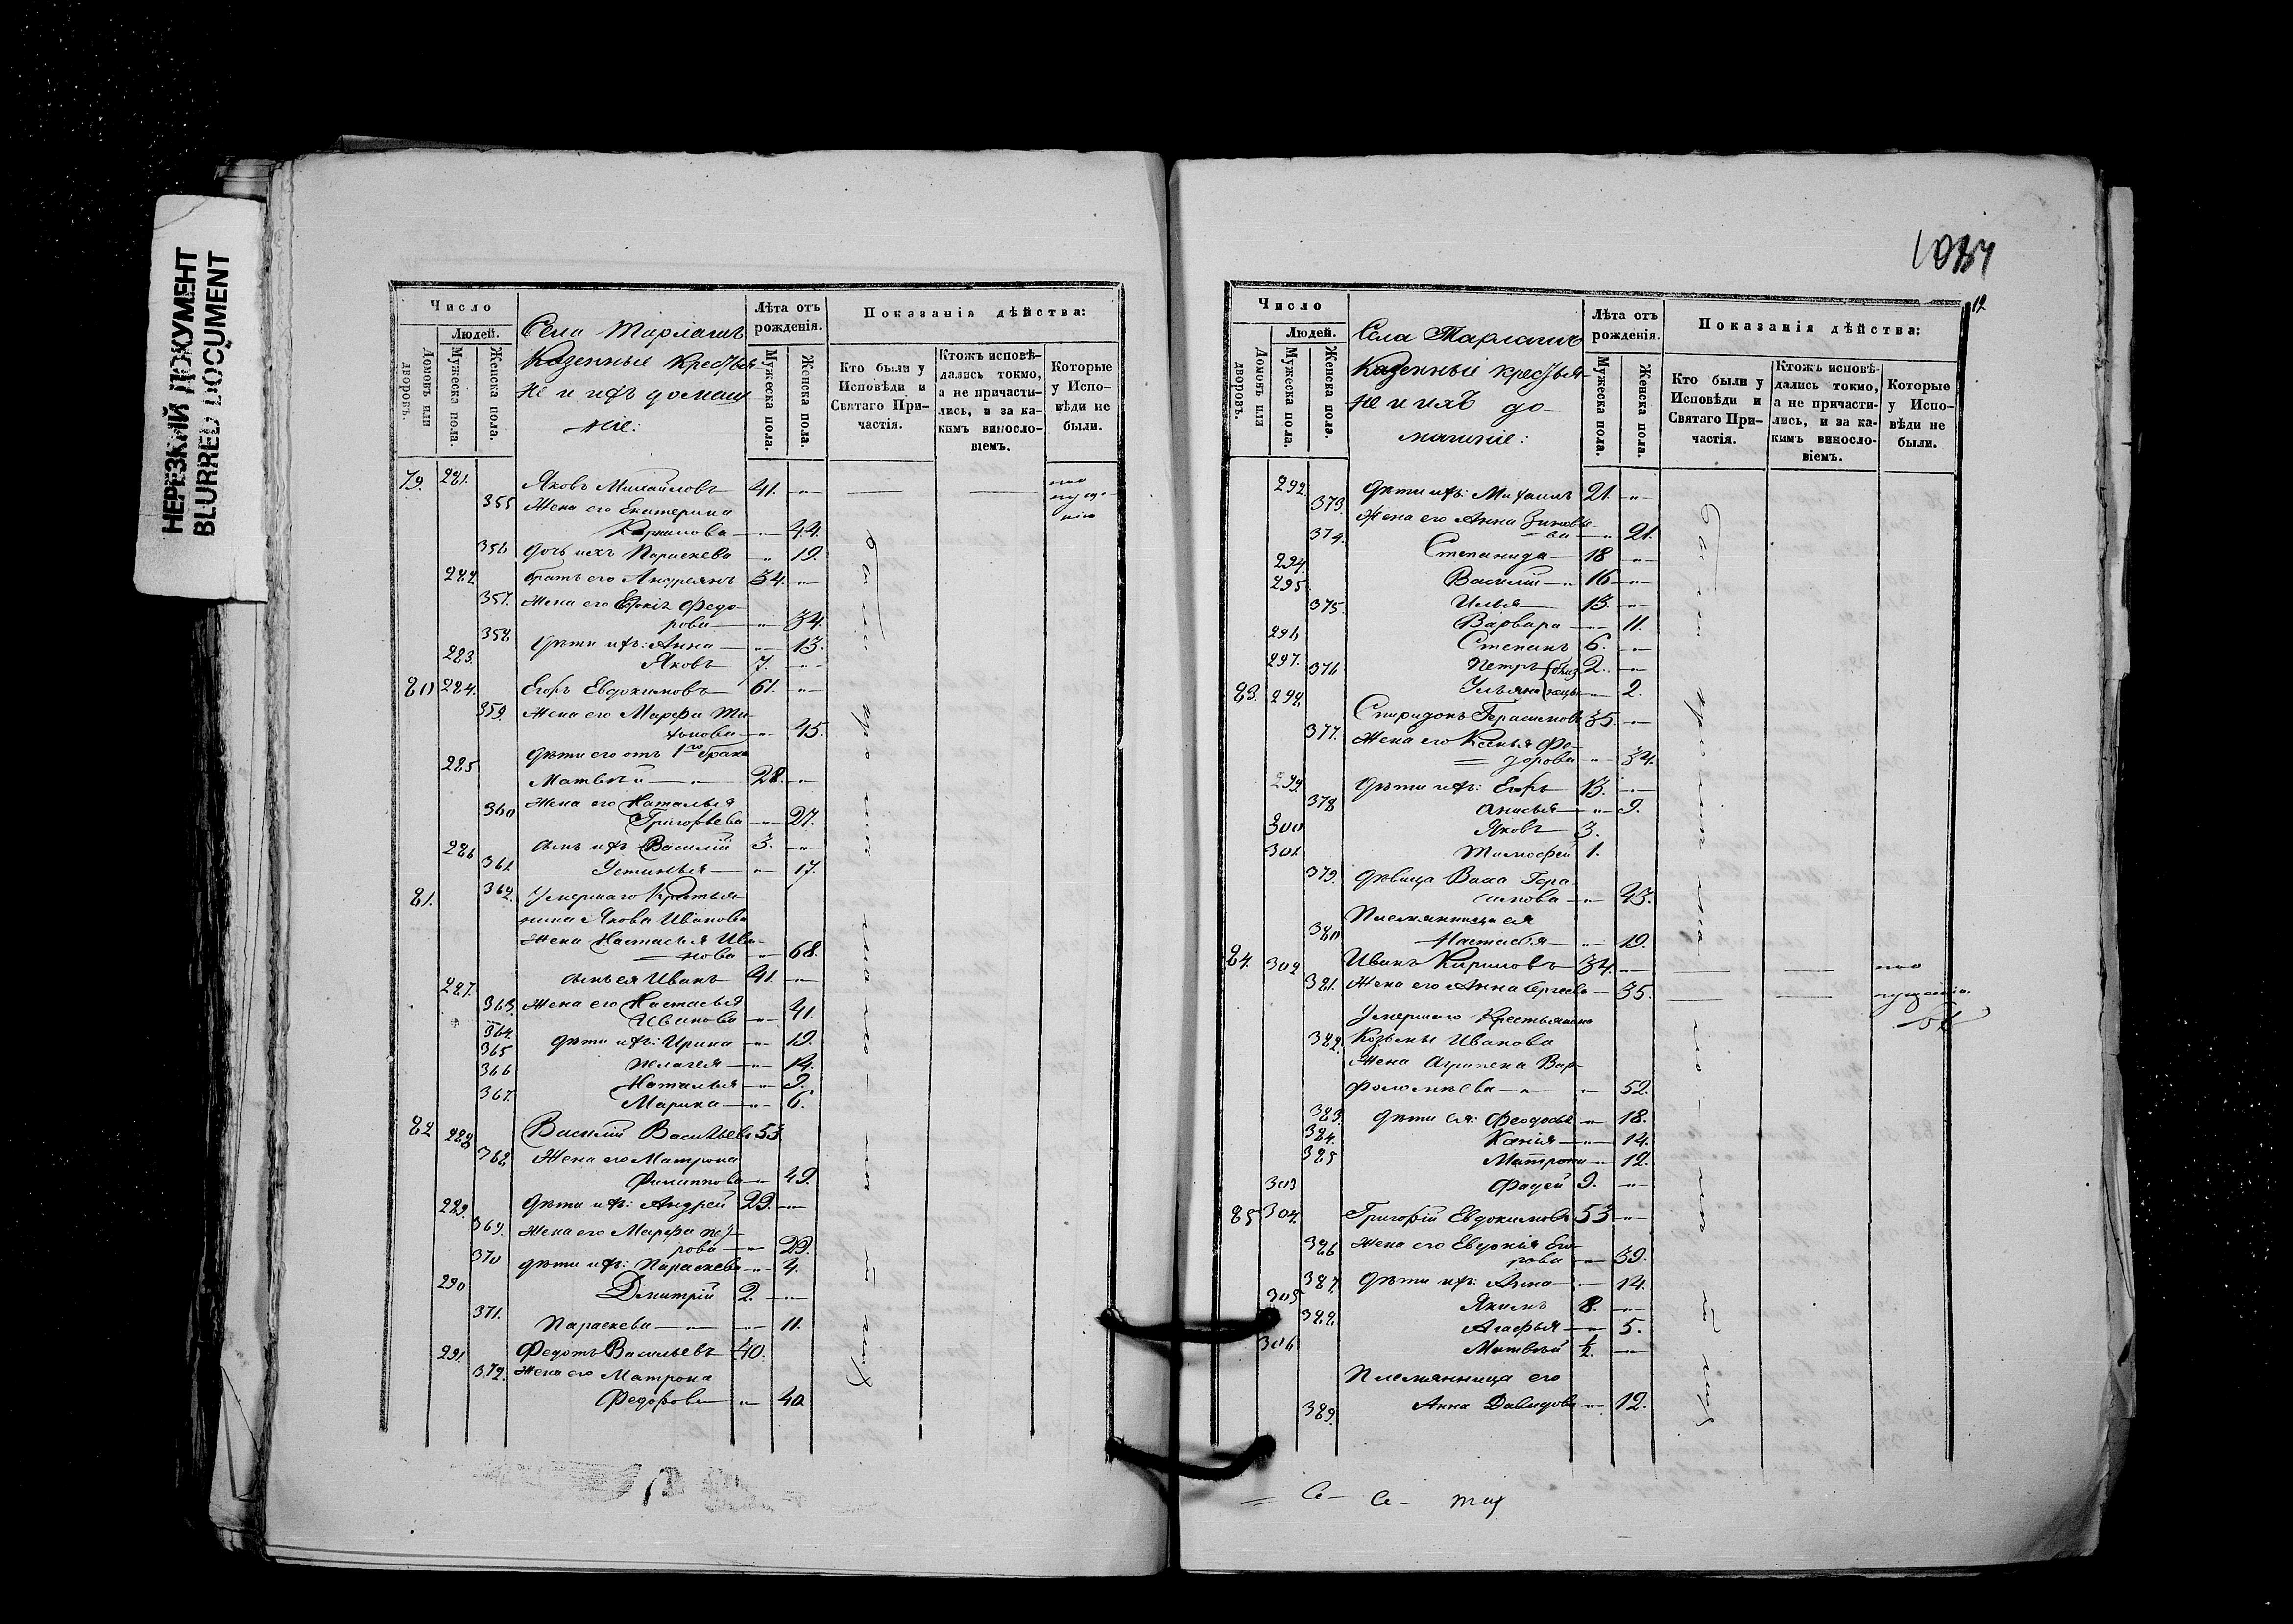 НЕРЕЗКИЙ ДОКУМЕНТ
BLURRED DOCUMENT
Число
Людей.
Домовъ или дворовъ.
Мужеска пола.
Женска пола.
Села Тарлашъ
Казенные крестья-
не и ихъ домаш-
ніе:
Лѣта отъ рожденія.
Мужеска пола.
Женска пола.
Показанія дѣйства:
Кто были у Исповѣди и Святаго При-частія.
Ктожъ исповѣ-дались токмо, а не причасти-лись, и за ка-кимъ виносло-віемъ.
Которые у Испо-вѣди не были.
79. 281. Яковъ Михайловъ 41. по
355 Жена его Екатерина опуще-
Кирилова 44. нію
356 Дочь ихъ Параскева 19.
282 братъ его Андреянъ 34.
357. Жена его Евдокія Федо-
рова 34.
358 Дѣти ихъ: Анна 13.
283. Яковъ 7.
80 284. Егоръ Евдокимовъ 61.
359. Жена его Марфа Ти-
хонова 45.
Дѣти его отъ 1го брака
285 Матвѣй 28.
360 Жена его Наталья
Григорьева 27.
286 сынъ ихъ Василій 3.
361. Устинья 17.
81. 362. Умершаго Крестья-
нина Якова Иванова
Жена Настасья Ива-
нова 68.
287. сынъ ея Иванъ 41.
363. Жена его Настасья
Иванова 41.
364. Дѣти ихъ: Ирина 19.
365 Пелагея 14.
366 Наталья 9.
367. Марина 6.
82 288 Василій Васильевъ 53.
368 Жена его Матрона
Филиппова 49.
289. Дѣти ихъ: Андрей 29.
369. Жена его Марфа Пет-
рова 29.
370 Дѣти ихъ: Параскева 4.
290 Димитрій 2.
371. Параскева 11.
291. Федотъ Васильевъ 40.
372. Жена его Матрона
Федорова 40
12
Число
Людей.
Домовъ или дворовъ.
Мужеска пола.
Женска пола.
Села Тарлашъ
Казенные крестья-
не и ихъ до-
машніе:
Лѣта отъ рожденія.
Мужеска пола.
Женска пола.
Показанія дѣйства:
Кто были у Исповѣди и Святаго При-частія.
Ктожъ исповѣ-дались токмо, а не причасти-лись, и за ка-кимъ виносло-віемъ.
Которые у Испо-вѣди не были.
292. Дѣти ихъ: Михаилъ 21.
373. Жена его Анна Зиновь-
ева 21.
374. Степанида 18
294. Василій 16
295. Илья 13.
375. Варвара 11.
296 Степанъ 6.
297. Петръ близ 2.
376 Ульяна нецы 2.
83. 298 Спиридонъ Герасимовъ 35.
377. Жена его Ксенья Фе-
дорова 34.
299. Дѣти ихъ: Егоръ 13.
378 Анисья 9.
300 Яковъ 3.
301. Тимофей 1.
379. Дѣвица Васа Гера-
симова 43.
Племянница ея
380 Настасья 19.
84. 302 Иванъ Кириловъ 34. по
381. Жена его Анна Сергеева 35. опущенію
Умершаго Крестьянина
382. Козьмы Иванова
Жена Агрипена Вар-
фоломѣева 52.
383. Дѣти ея: Феодосья 18.
384. Ксенія 14.
385 Матрона 12.
303 Фадей 9.
85 304. Григорій Евдокимовъ 53
386 Жена его Евдокія Его-
рова 39.
387. Дѣти ихъ: Анна 14.
305 Якимъ 8.
388. Агафья 5.
306 Матвѣй ½.
Племянница его
389. Анна Давидова 12.